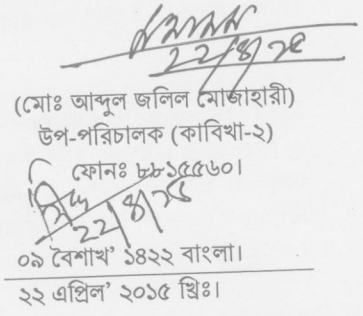 ২২/৪/১৫
(মোঃ আব্দুল জলিল মোজাহারী)
উপ-পরিচালক (কাবিখা-২)
ফোনঃ ৮৮১৫৫৬০।
২২/৪/১৫
০৯ বৈশাখ’ ১৪২২ বাংলা।
২২ এপ্রিল’ ২০১৫ খ্রিঃ।